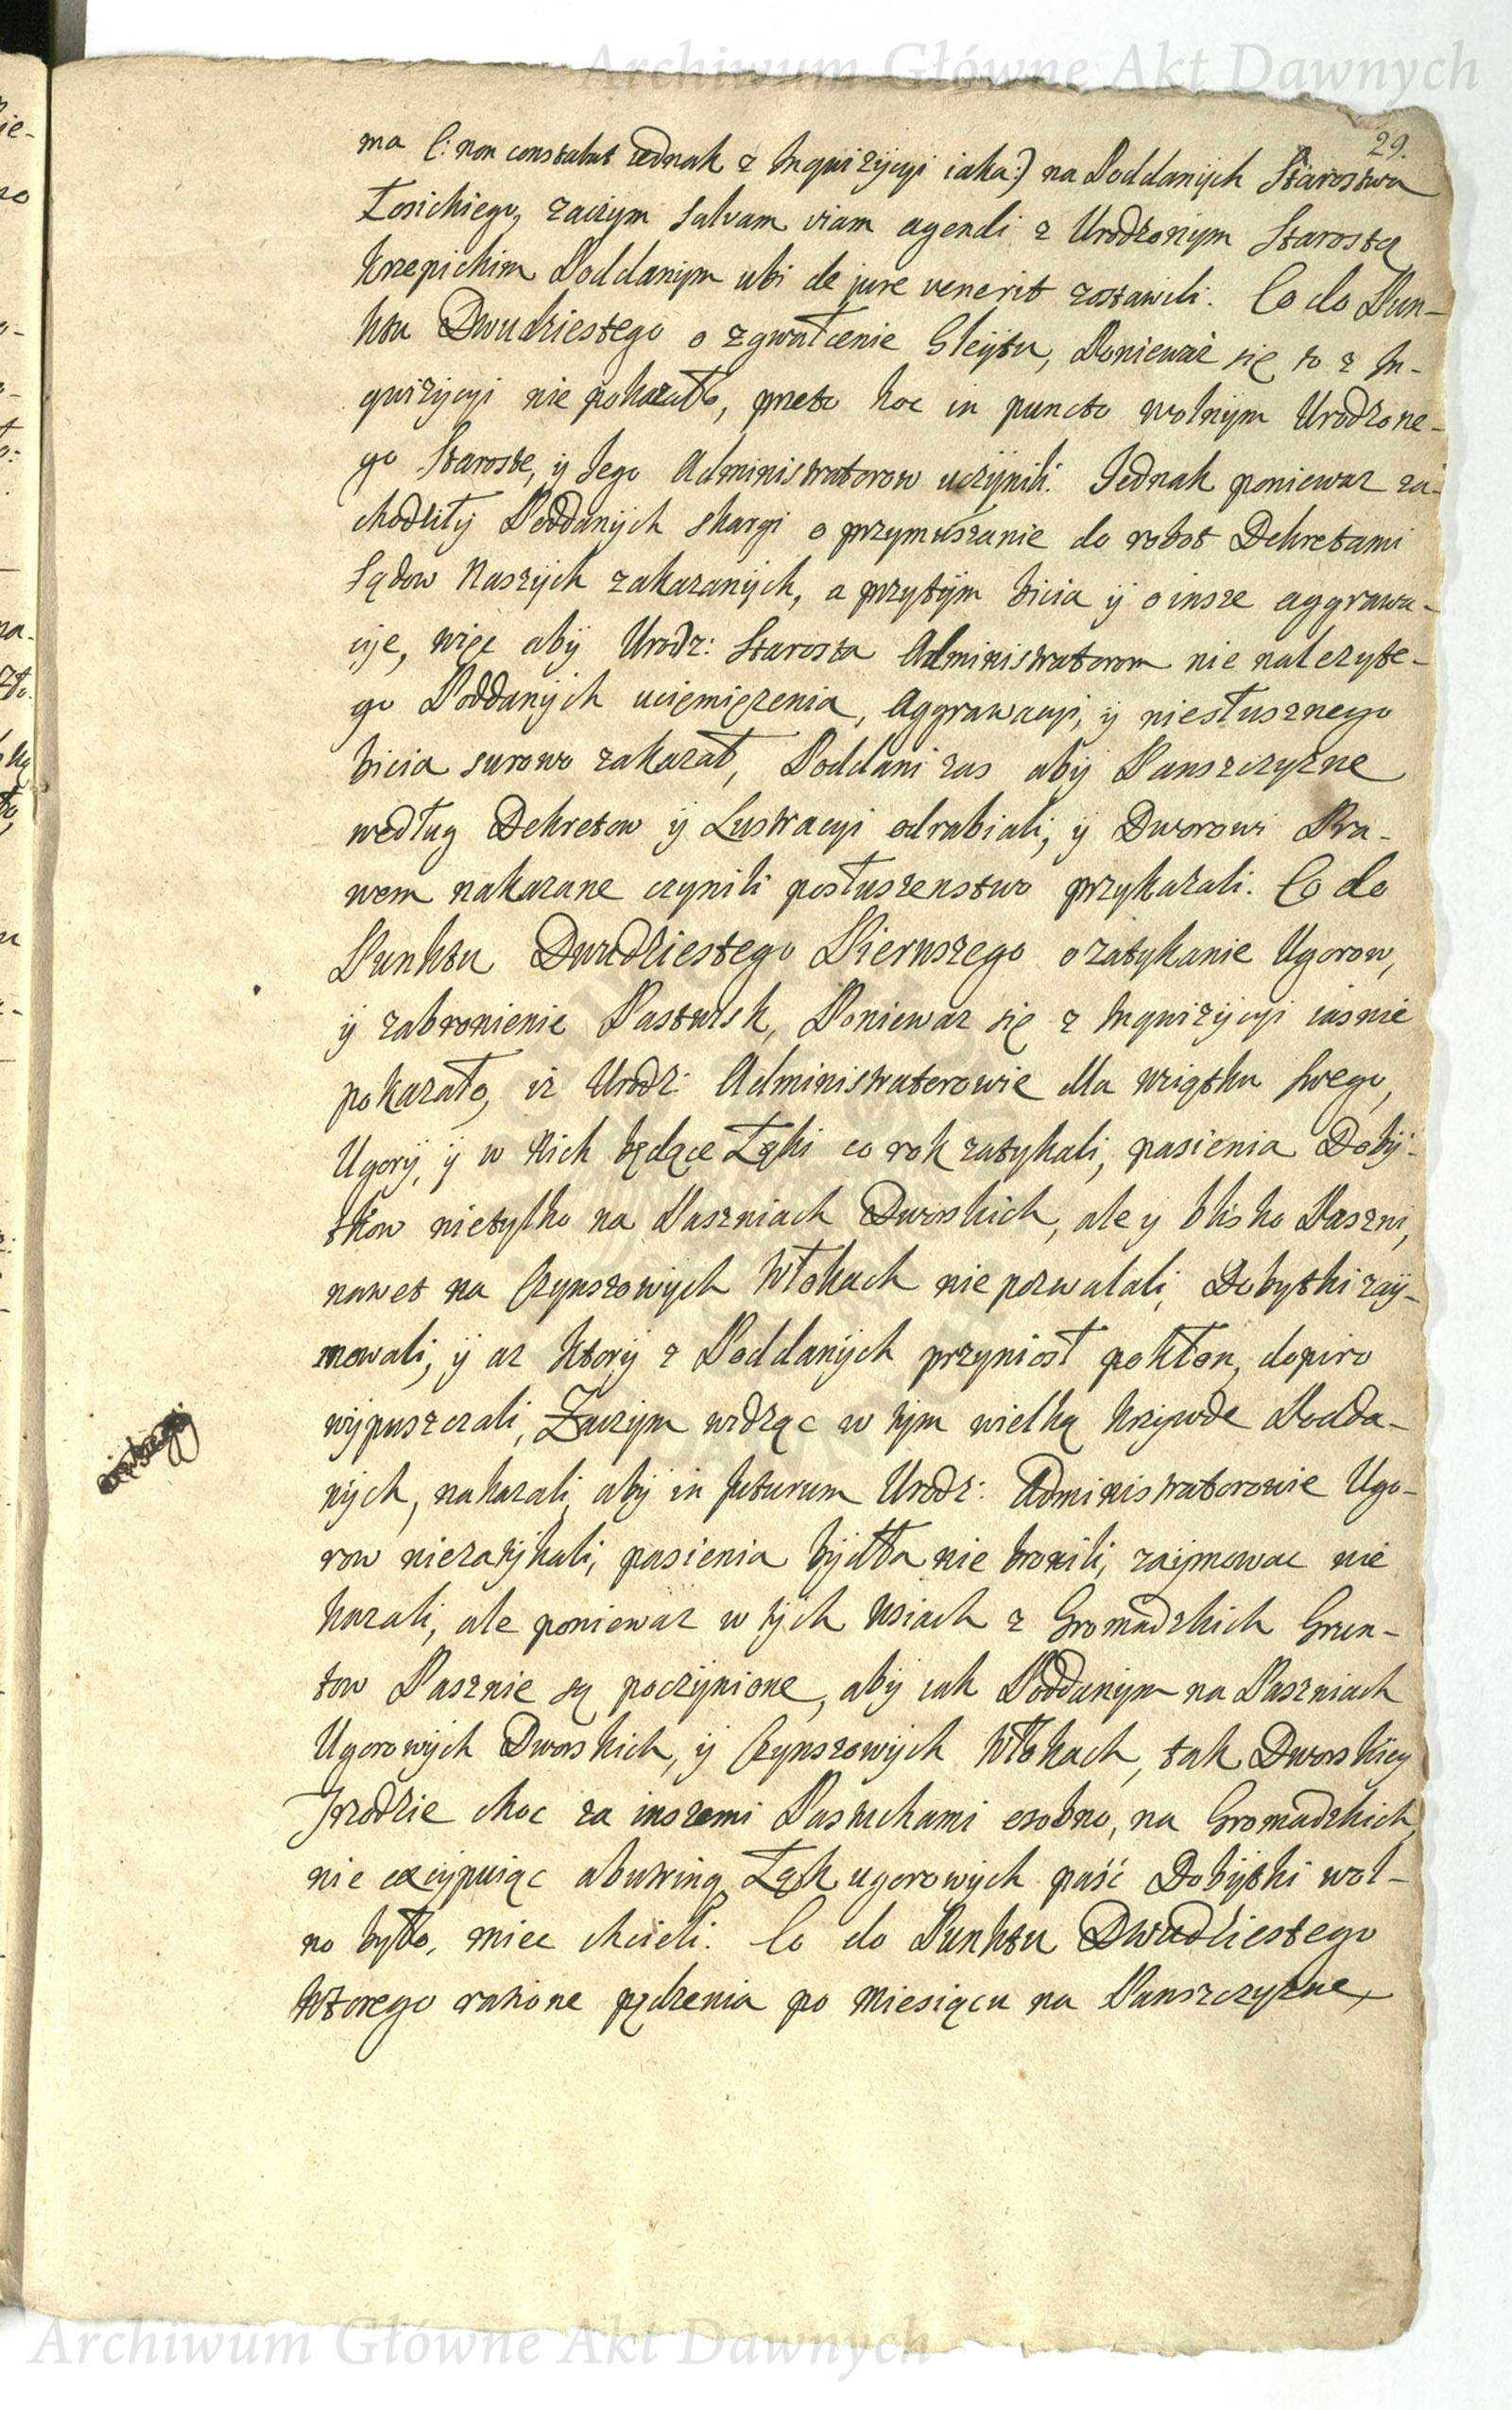 Archiwum Główne Akt Dawnych
29.
ma (: non constabat jednak z Inquizycyi iaka :) na Poddanÿch Starostwa
Łosickiego, zaczym salvam viam agendi z Urodzonÿm Starostą
Krzepickim Poddanÿm ubi de jure venerit zostawili. Co do Pun-
ktu Dwudziestego o zgwałcenie Gleÿtu, Ponieważ się to z In-
quizÿcÿi nie pokazało, przeto hoc in puncto wolnÿm Urodzone-
go Starostę, ÿ Jego Administratorow uczÿnili. Jednak poniewaz za-
chodziłÿ Poddanÿch skargi o przymuszanie do robot Dekretami
Sądow Naszÿch zakazanÿch, a przytÿm bicia ÿ o insze aggrawa-
cÿe, więc abÿ Urodz: Starosta Administratorom nie nalezyte-
go Poddanÿch uciemięzenia, Aggrawacyi, ÿ niesłusznego
bicia surowo zakazał, Poddani zas abÿ Panszczyzne
według Dekretow ÿ Lustracyi odrabiali, ÿ Dworowi Pra-
wem nakazane czynili posłuszenstwo przykazali. Co do
Punktu Dwudziestego Pierwszego o zatykanie Ugorow,
ÿ zabronienie Pastwisk, Poniewaz się z Inquizÿcyi iasnie
pokazało, iz Urodz: Administratorowie dla wziątku swego,
Ugorÿ, ÿ w Nich będące Łąki co rok zatykali, pasienia Dobÿ-
tkow nietylko na Paszniach Dworskich, ale y blisko Paszni,
nawet na Czynszowÿch Włokach nie pozwalali, Dobytki zaÿ-
mowali, ÿ az ktorÿ z Poddanÿch przyniosł pokłon, dopiro
wÿpuszczali, Zaczym widząc w tÿm wielką krzywde Podda-
nÿch, nakazali, abÿ in futurum Urodz: Administratorowie Ugo-
row niezatÿkali, pasienia bÿdła nie bronili, zaÿmowac nie
kazali, ale poniewaz w tÿch Wsiach z Gromadzkich Grun-
tow Pasznie są poczÿnione, abÿ iak Poddanÿm na Paszniach
Ugorowÿch Dworskich, ÿ Czynszowÿch Włokach, tak Dworskiey
Trzodzie choc za inszemi Pastuchami osobno, na Gromadzkich,
nie excÿpuiąc abutring Łąk ugorowÿch paść Dobÿtki wol-
no było, miec chcieli. Co do Punktu Dwudziestego
Wtorego ratione pędzenia po Miesiącu na Panszczyzne,
Archiwum Główne Akt Dawnych